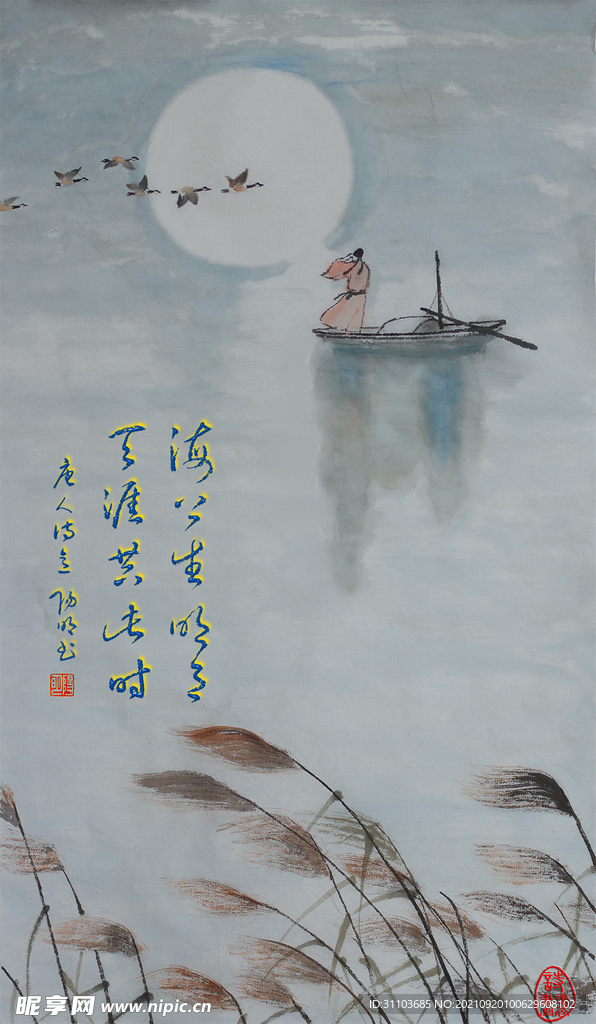 海上生明月
天涯共此时
唐人诗意 阳明书
昵享网 www.nipic.cn
ID:31103685 NO:20210920100629608102